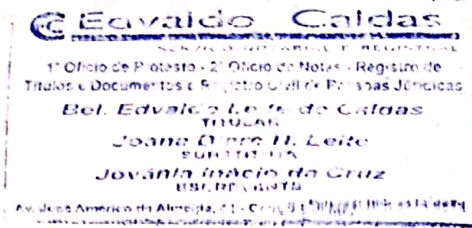 Edvaldo Caldas
SERVIÇO NOTARIAL E REGISTRAL
1º Oficio de Protesto - 2º Oficio de Notas - Registro de
Titulos e Documentos e Registro Civil de Pessoas Jurídicas
Bel. Edvaldo Leite de Caldas
TITULAR
Joana D'arc H. Leite
SUBSTITUTA
Jovânia Inácio da Cruz
ESCREVENTE
Av. José Américo de Almeida,